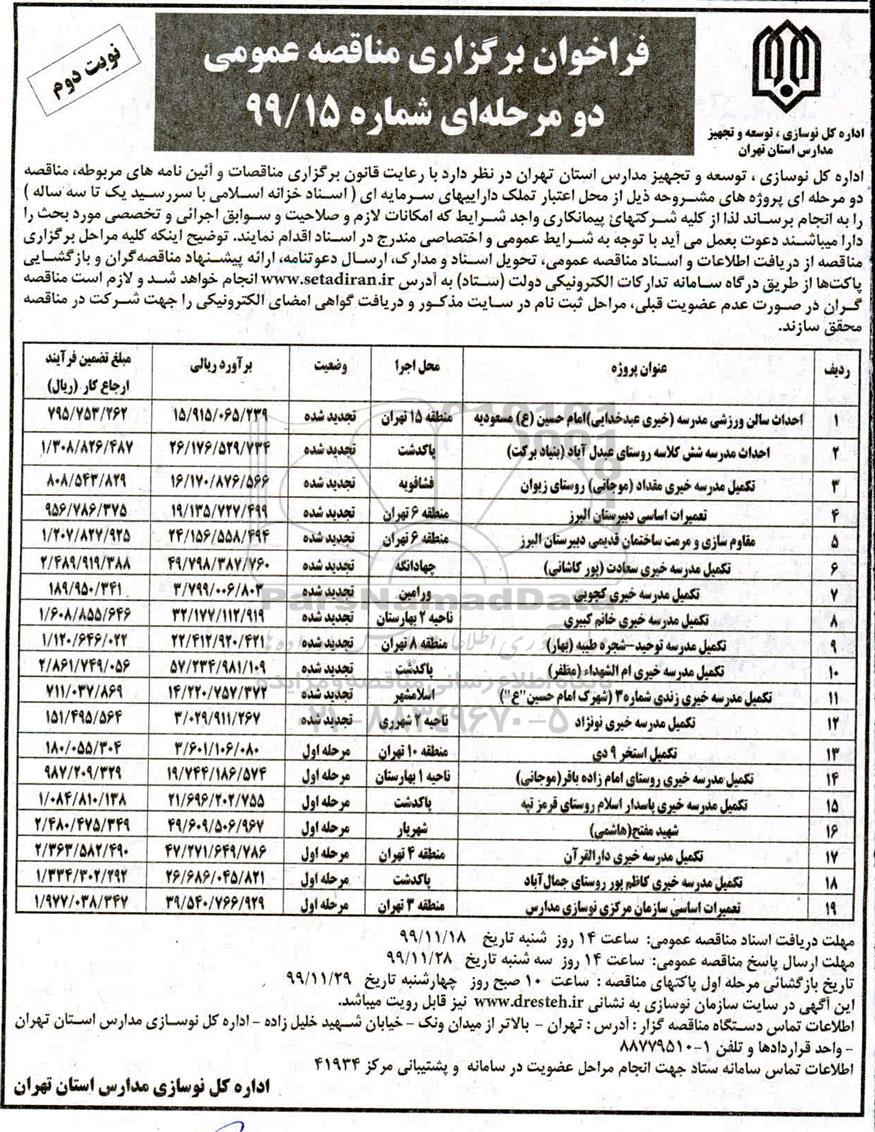 نوبت دوم
فراخوان برگزاری مناقصه عمومی
دو مرحله‌ای شماره ۹۹/۱۵
اداره کل نوسازی ، توسعه و تجهیز
مدارس استان تهران
اداره کل نوسازی ، توسعه و تجهیز مدارس استان تهران در نظر دارد با رعایت قانون برگزاری مناقصات و آئین نامه های مربوطه، مناقصه
دو مرحله ای پروژه های مشروحه ذیل از محل اعتبار تملک داراییهای سرمایه ای ( اسناد خزانه اسلامی با سررسید یک تا سه ساله )
را به انجام برساند لذا از کلیه شرکتهای پیمانکاری واجد شرایط که امکانات لازم و صلاحیت و سوابق اجرائی و تخصصی مورد بحث را
دارا میباشند دعوت بعمل می آید با توجه به شرایط عمومی و اختصاصی مندرج در اسناد اقدام نمایند. توضیح اینکه کلیه مراحل برگزاری
مناقصه از دریافت اطلاعات و اسناد مناقصه عمومی، تحویل اسناد و مدارک، ارسال دعوتنامه، ارائه پیشنهاد مناقصه‌گران و بازگشایی
پاکت‌ها از طریق درگاه سامانه تدارکات الکترونیکی دولت (ستاد) به آدرس www.setadiran.ir انجام خواهد شد و لازم است مناقصه
گران در صورت عدم عضویت قبلی، مراحل ثبت نام در سایت مذکور و دریافت گواهی امضای الکترونیکی را جهت شرکت در مناقصه
محقق سازند.
ردیف عنوان پروژه محل اجرا وضعیت برآورد ریالی مبلغ تضمین فرآیند ارجاع کار (ریال)
۱ احداث سالن ورزشی مدرسه (خیری عبدخدایی)امام حسین (ع) مسعودیه منطقه ۱۵ تهران تجدید شده ۱۵/۹۱۵/۰۶۵/۲۳۹ ۷۹۵/۷۵۳/۲۶۲
۲ احداث مدرسه شش کلاسه روستای عبدل آباد (بنیاد برکت) پاکدشت تجدید شده ۲۶/۱۷۶/۵۲۹/۷۳۴ ۱/۳۰۸/۸۲۶/۴۸۷
۳ تکمیل مدرسه خیری مقداد (موجانی) روستای زیوان فشافویه تجدید شده ۱۶/۱۷۰/۸۷۶/۵۶۶ ۸۰۸/۵۴۳/۸۲۹
۴ تعمیرات اساسی دبیرستان البرز منطقه ۶ تهران تجدید شده ۱۹/۱۳۵/۷۲۷/۴۹۹ ۹۵۶/۷۸۶/۳۷۵
۵ مقاوم سازی و مرمت ساختمان قدیمی دبیرستان البرز منطقه ۶ تهران تجدید شده ۲۴/۱۵۶/۵۵۸/۴۹۴ ۱/۲۰۷/۸۲۷/۹۲۵
۶ تکمیل مدرسه خیری سعادت (پور کاشانی) چهادانگه تجدید شده ۴۹/۷۹۸/۳۸۷/۷۶۰ ۲/۴۸۹/۹۱۹/۳۸۸
۷ تکمیل مدرسه خیری کچویی ورامین تجدید شده ۳/۷۹۹/۰۰۶/۸۰۳ ۱۸۹/۹۵۰/۳۴۱
۸ تکمیل مدرسه خیری خانم کبیری ناحیه ۲ بهارستان تجدید شده ۳۲/۱۷۷/۱۱۲/۹۱۹ ۱/۶۰۸/۸۵۵/۶۴۶
۹ تکمیل مدرسه توحید-شجره طیبه (بهار) منطقه ۸ تهران تجدید شده ۲۲/۴۱۲/۹۲۰/۴۲۱ ۱/۱۲۰/۶۴۶/۰۲۲
۱۰ تکمیل مدرسه خیری ام الشهداء (مظفر) پاکدشت تجدید شده ۵۷/۲۳۴/۹۸۱/۱۰۹ ۲/۸۶۱/۷۴۹/۰۵۶
۱۱ تکمیل مدرسه خیری زندی شماره۳ (شهرک امام حسین"ع") اسلامشهر تجدید شده ۱۴/۲۲۰/۷۵۷/۳۷۲ ۷۱۱/۰۳۷/۸۶۹
۱۲ تکمیل مدرسه خیری نونژاد ناحیه ۲ شهرری تجدید شده ۳/۰۲۹/۹۱۱/۲۶۷ ۱۵۱/۴۹۵/۵۶۴
۱۳ تکمیل استخر ۹ دی منطقه ۱۰ تهران مرحله اول ۳/۶۰۱/۱۰۶/۰۸۰ ۱۸۰/۰۵۵/۳۰۴
۱۴ تکمیل مدرسه خیری روستای امام زاده باقر(موجانی) ناحیه ۱ بهارستان مرحله اول ۱۹/۷۴۴/۱۸۶/۵۷۴ ۹۸۷/۲۰۹/۳۲۹
۱۵ تکمیل مدرسه خیری پاسدار اسلام روستای قرمز تپه پاکدشت مرحله اول ۲۱/۶۹۶/۲۰۲/۷۵۵ ۱/۰۸۴/۸۱۰/۱۳۸
۱۶ شهید مفتح(هاشمی) شهریار مرحله اول ۴۹/۶۰۹/۵۰۶/۹۶۷ ۲/۴۸۰/۴۷۵/۳۴۹
۱۷ تکمیل مدرسه خیری دارالقرآن منطقه ۴ تهران مرحله اول ۴۷/۲۷۱/۶۴۹/۷۸۶ ۲/۳۶۳/۵۸۲/۴۹۰
۱۸ تکمیل مدرسه خیری کاظم پور روستای جمال‌آباد پاکدشت مرحله اول ۲۶/۶۸۶/۰۴۵/۸۲۱ ۱/۳۳۴/۳۰۲/۲۹۲
۱۹ تعمیرات اساسی سازمان مرکزی نوسازی مدارس منطقه ۳ تهران مرحله اول ۳۹/۵۴۰/۷۶۶/۹۲۹ ۱/۹۷۷/۰۳۸/۳۴۷
ParsNamadData
پایگاه اطلاع رسانی مناقصه و مزایده
۰۲۱-۸۸۳۴۹۶۷۰-۵
مهلت دریافت اسناد مناقصه عمومی: ساعت ۱۴ روز شنبه تاریخ ۹۹/۱۱/۱۸
مهلت ارسال پاسخ مناقصه عمومی: ساعت ۱۴ روز سه شنبه تاریخ ۹۹/۱۱/۲۸
تاریخ بازگشائی مرحله اول پاکتهای مناقصه : ساعت ۱۰ صبح روز چهارشنبه تاریخ ۹۹/۱۱/۲۹
این آگهی در سایت سازمان نوسازی به نشانی www.dresteh.ir نیز قابل رویت میباشد.
اطلاعات تماس دستگاه مناقصه گزار : آدرس : تهران - بالاتر از میدان ونک - خیابان شهید خلیل زاده - اداره کل نوسازی مدارس استان تهران
- واحد قراردادها و تلفن ۱-۸۸۷۷۹۵۱۰
اطلاعات تماس سامانه ستاد جهت انجام مراحل عضویت در سامانه و پشتیبانی مرکز ۴۱۹۳۴
اداره کل نوسازی مدارس استان تهران